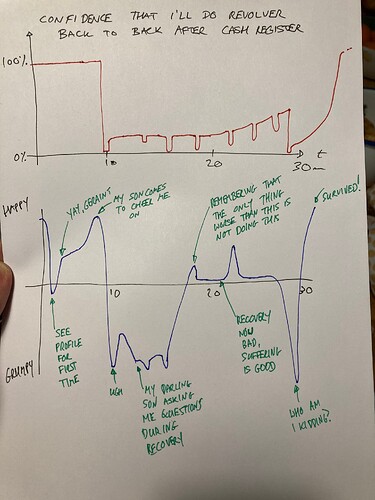 CONFIDENCE THAT I'LL DO REVOLVER
BACK TO BACK AFTER CASH REGISTER
100%
0%
10
20
30m
t
HAPPY
GRUMPY
YAY, GERAINT
MY SON COMES
TO CHEER ME
ON
REMEMBERING THAT
THE ONLY THING
WORSE THAN THIS IS
NOT DOING THIS
SURVIVED!
10
20
30
SEE
PROFILE
FOR
FIRST
TIME
UGH
MY DARLING
SON ASKING
ME QUESTIONS
DURING
RECOVERY
RECOVERY
NOW
BAD,
SUFFERING
IS GOOD
WHO AM
I KIDDING?